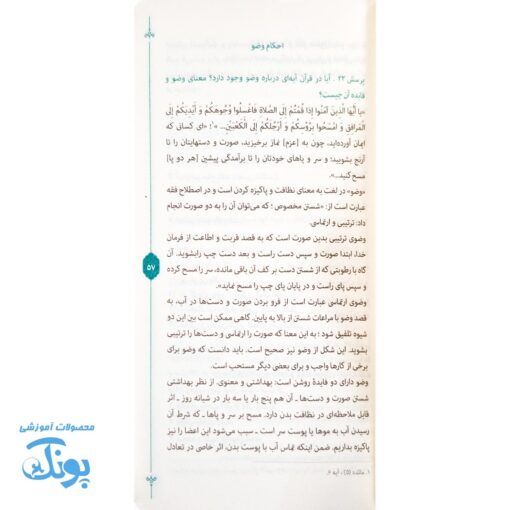 احکام وضو
پرسش ۲۲. آیا در قرآن آیه‌ای درباره وضو وجود دارد؟ معنای وضو و
فایده آن چیست؟
«یا أَیُّهَا الَّذینَ آمَنُوا إِذا قُمْتُمْ إِلَی الصَّلاةِ فَاغْسِلُوا وُجُوهَکُمْ وَ أَیْدِیَکُمْ إِلَی
الْمَرافِقِ وَ امْسَحُوا بِرُؤُسِکُمْ وَ أَرْجُلَکُمْ إِلَی الْکَعْبَیْنِ...»۱؛ «ای کسانی که
ایمان آورده‌اید، چون به [عزم] نماز برخیزید، صورت و دستهایتان را تا
آرنج بشویید؛ و سر و پاهای خودتان را تا برآمدگی پیشین [هر دو پا]
مسح کنید...».
«وضو» در لغت به معنای نظافت و پاکیزه کردن است و در اصطلاح فقه
عبارت است از: «شستن مخصوص؛ که می‌توان آن را به دو صورت انجام
داد: ترتیبی و ارتماسی.
وضوی ترتیبی بدین صورت است که به قصد قربت و اطاعت از فرمان
خدا، ابتدا صورت و سپس دست راست و بعد دست چپ رابشوید. آن
گاه با رطوبتی که از شستن دست بر کف آن باقی مانده، سر را مسح کرده
و سپس پای راست و در پایان پای چپ را مسح نماید».
وضوی ارتماسی عبارت است از فرو بردن صورت و دست‌ها در آب، به
قصد وضو با مراعات شستن از بالا به پایین. گاهی ممکن است بین این دو
شیوه تلفیق شود؛ به این معنا که صورت را ارتماسی و دست‌ها را ترتیبی
بشوید. این شکل از وضو نیز صحیح است. باید دانست که وضو برای
برخی از کارها واجب و برای بعضی دیگر مستحب است.
وضو دارای دو فایدهٔ روشن است: بهداشتی و معنوی. از نظر بهداشتی
شستن صورت و دست‌ها ـ آن هم پنج بار یا سه بار در شبانه روز ـ اثر
قابل ملاحظه‌ای در نظافت بدن دارد. مسح بر سر و پاها ـ که شرط آن
رسیدن آب به موها یا پوست سر است ـ سبب می‌شود این اعضا را نیز
پاکیزه بداریم. ضمن اینکه تماس آب با پوست بدن، اثر خاصی در تعادل
۱. مائده (۵)، آیه ۶.
۵۷
محصولات آموزشی
پونک